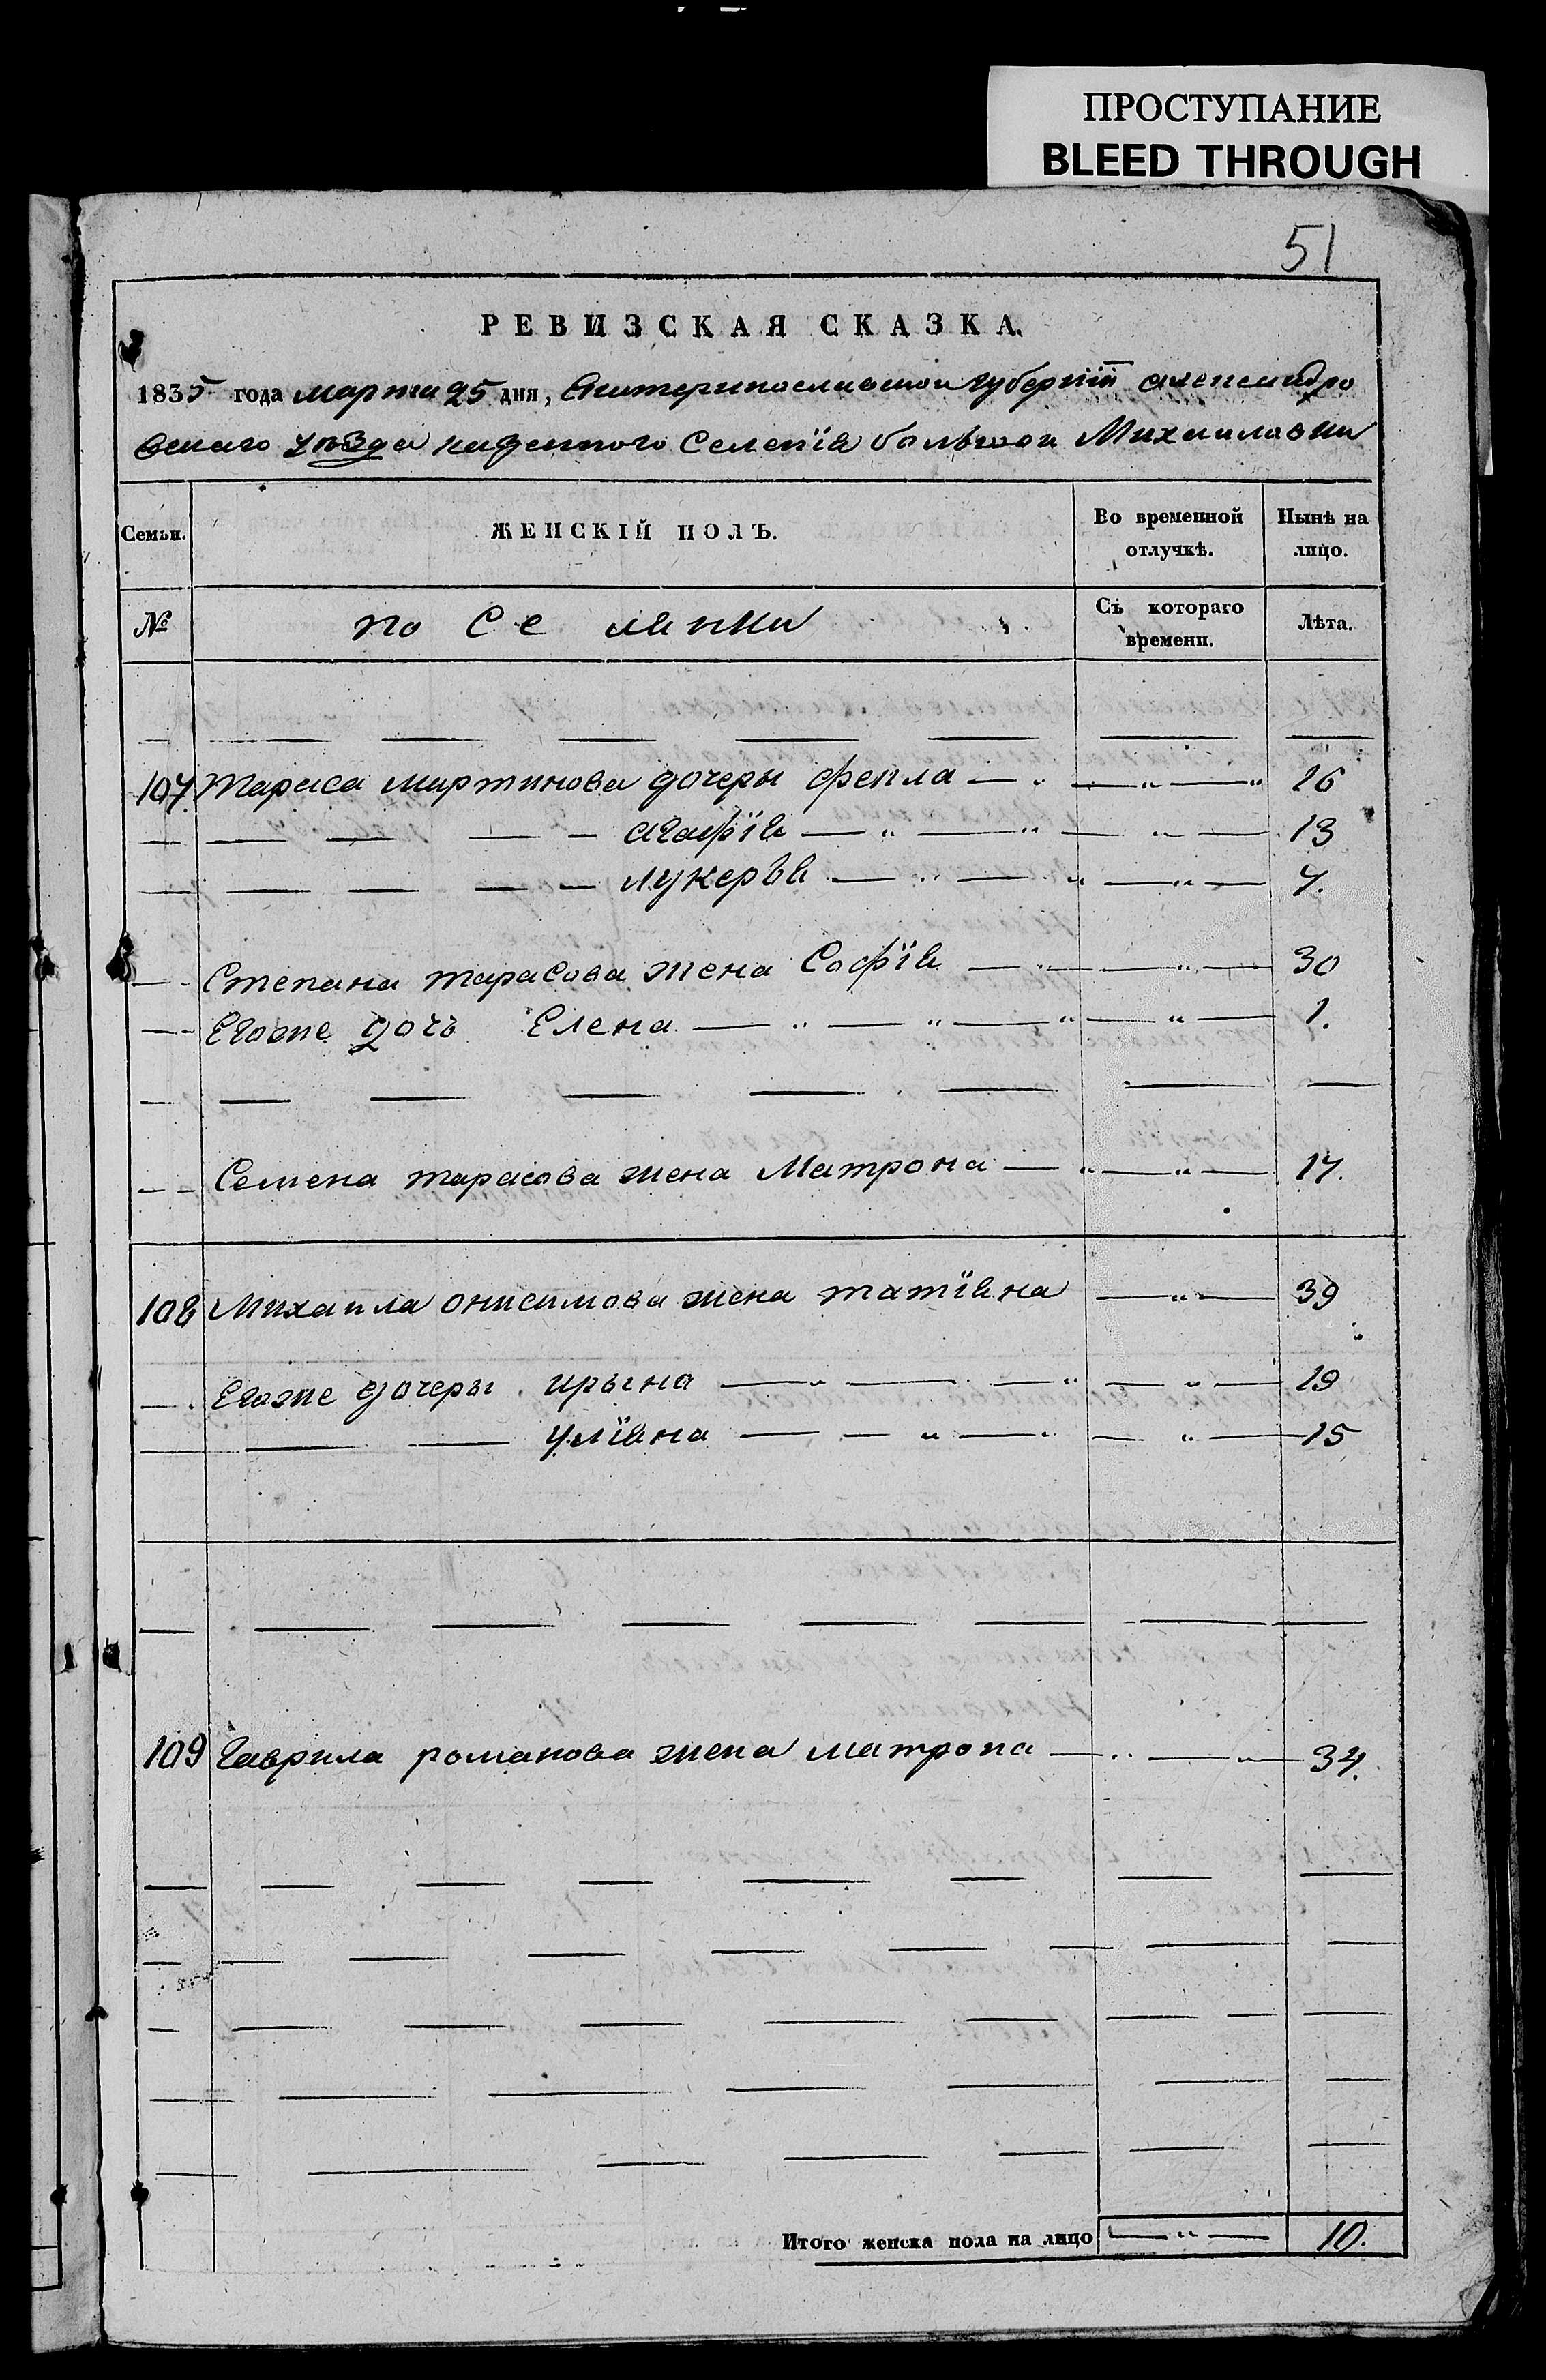 ПРОСТУПАНИЕ
BLEED THROUGH
51
РЕВИЗСКАЯ СКАЗКА.
1835 года марта 25 дня, Екатеринославской губернїи александро
вскаго уѣзда казенного Селенїя большой Михаиловки
Семьи. ЖЕНСКІЙ ПОЛЪ. Во временной отлучкѣ. Нынѣ на лицо.
№ по Се лянки Съ котораго времени. Лѣта.
107 Тараса мартинова дочеры фекла — „ — „ — „ 16
— — — — — агафїя — „ — „ — „ — 13
— — — — — лукерья — „ — „ — „ — 7.
— Степана тарасова жена Софїя — „ — „ — 30
— Егоже дочь Елена — „ — „ — „ — „ — 1.
— Семена тарасова жена Матрона — „ — „ — 17.
108 Михаила онисимова жена татїяна — „ — 39
— Егоже дочеры ирына — „ — — „ — „ — 19
— — — улїяна — — „ — „ — „ — 15
109 Гаврила романова жена матрона — „ — „ — 34.
Итого женска пола на лицо — „ — 10.